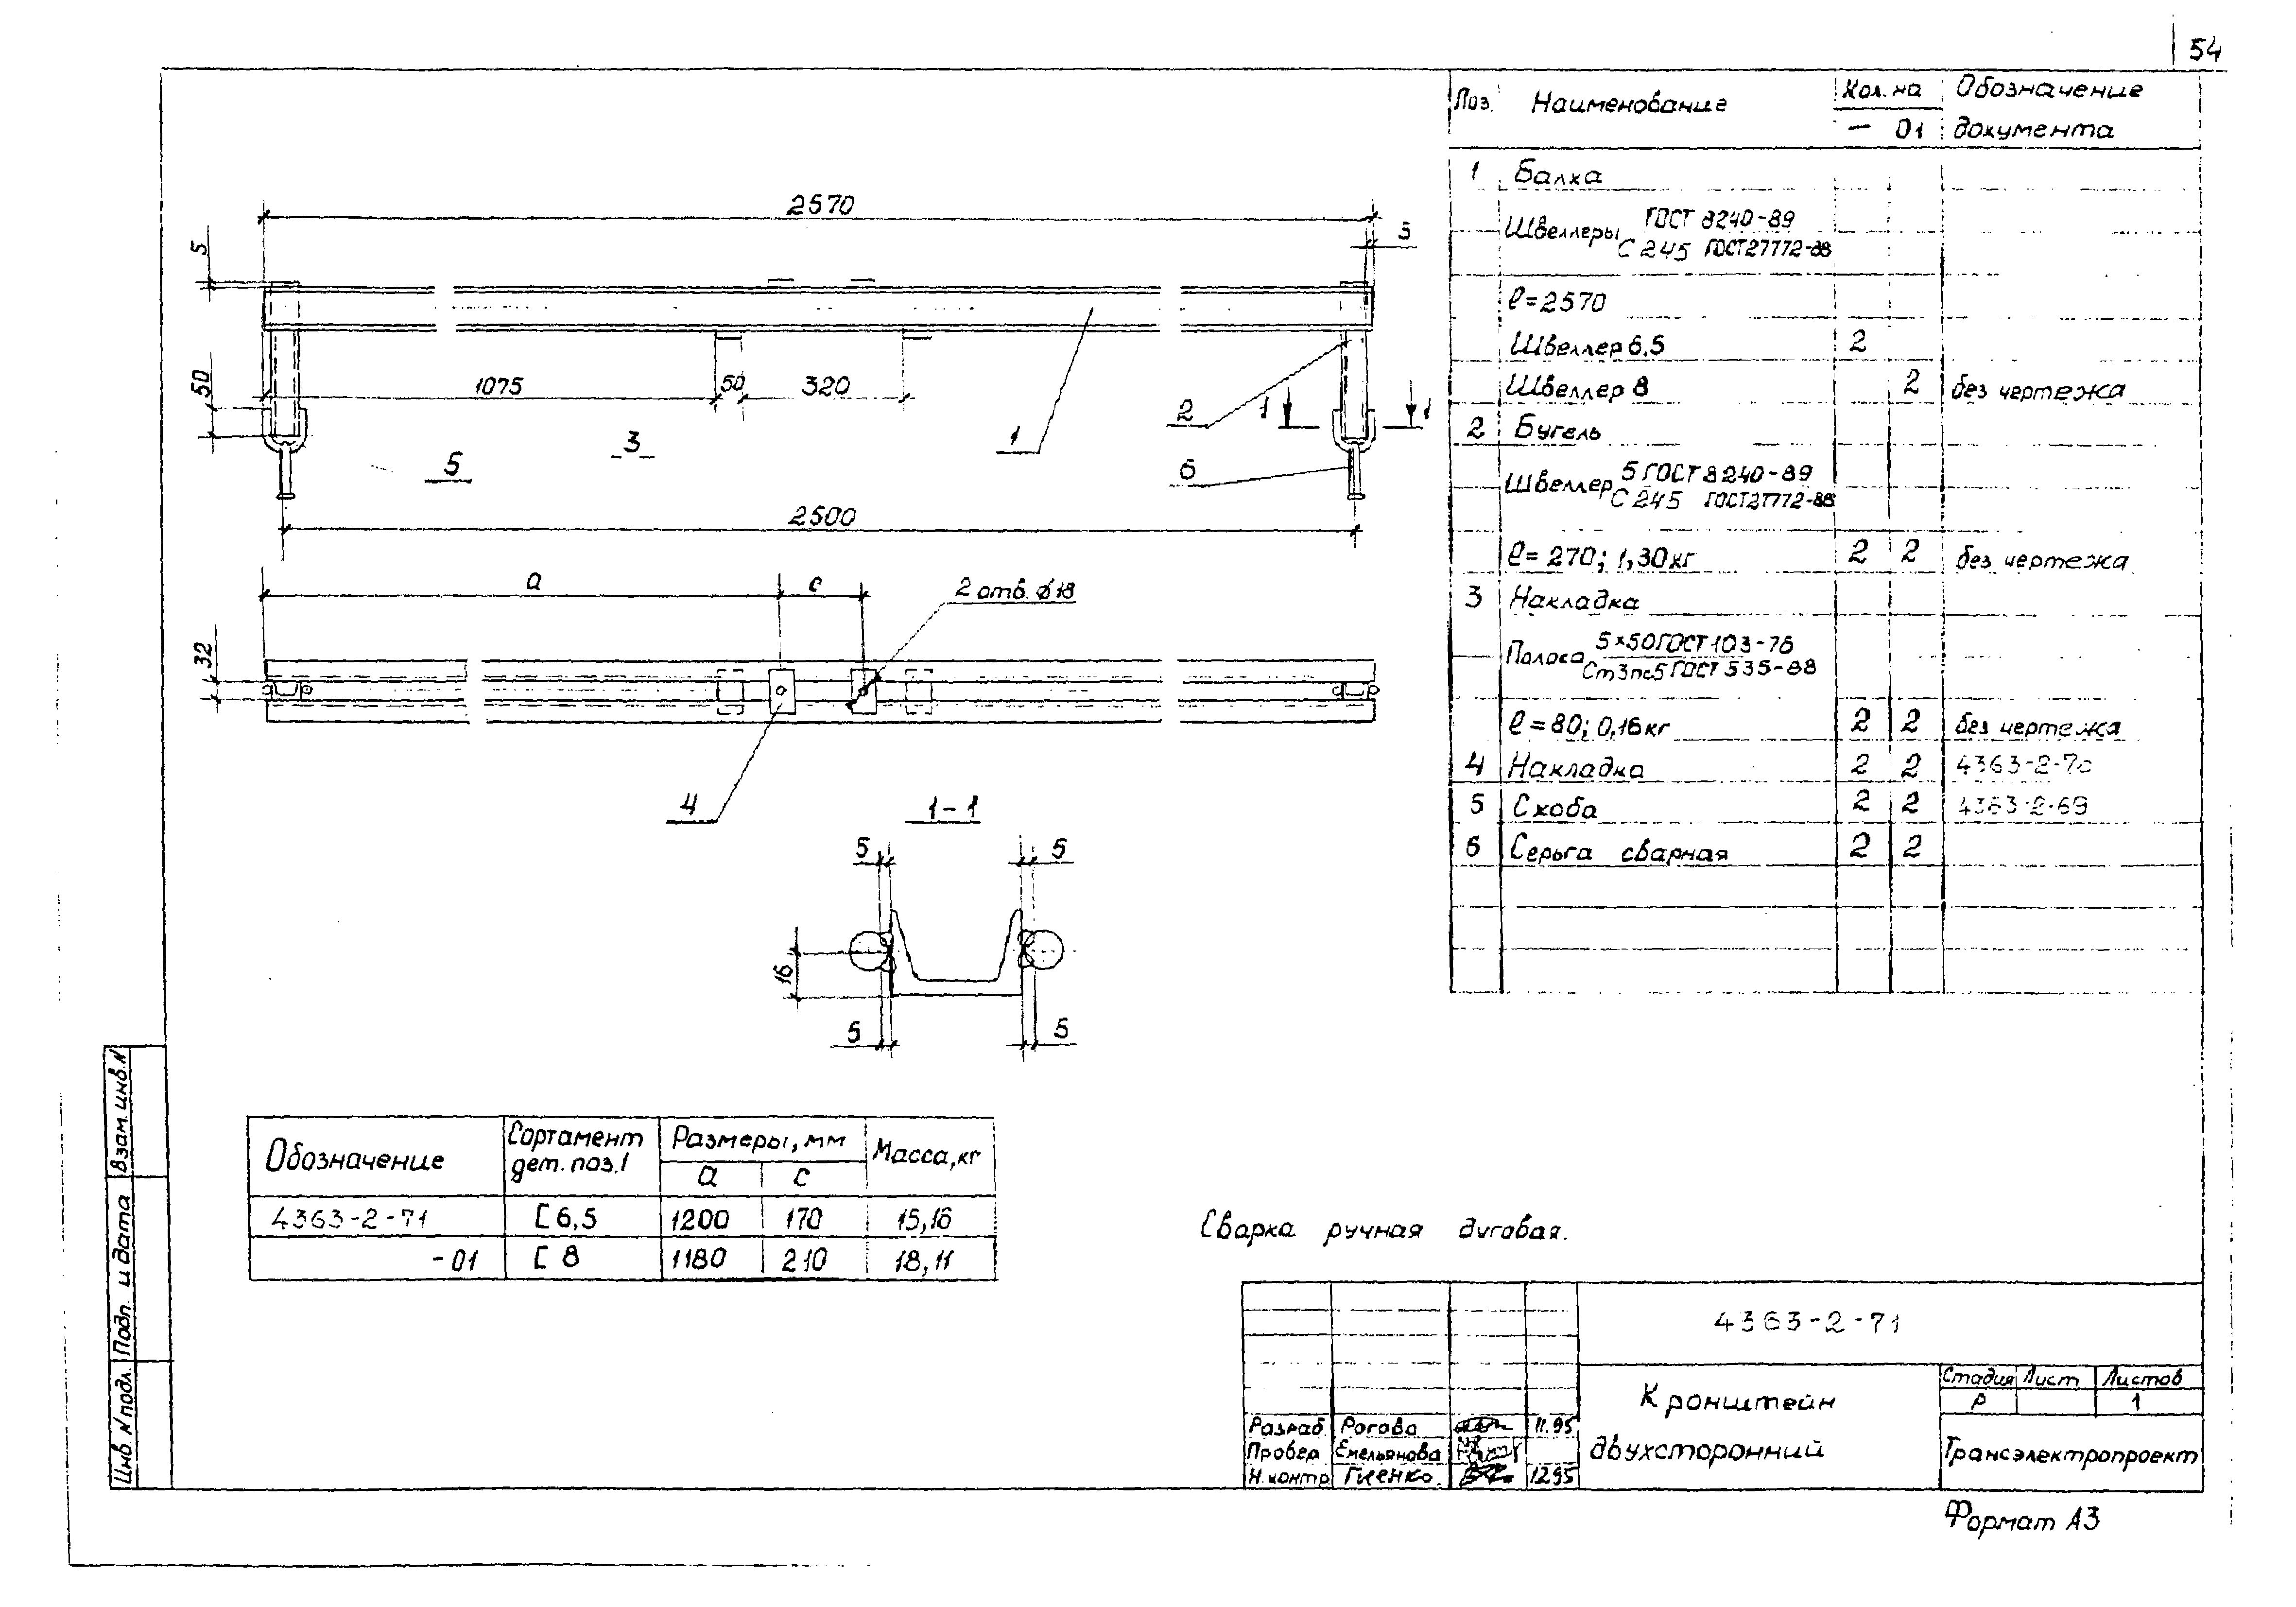 54
Поз. Наименование Кол. на Обозначение
— 01 документа
1 Балка
Швеллеры ГОСТ 8240-89
С 245 ГОСТ 27772-88
ℓ=2570
Швеллер 6,5 2
Швеллер 8 2 без чертежа
2 Бугель
Швеллер 5 ГОСТ 8240-89
С 245 ГОСТ 27772-88
ℓ= 270; 1,30кг 2 2 без чертежа
3 Накладка
Полоса 5×50 ГОСТ 103-76
Ст3пс5 ГОСТ 535-88
ℓ=80; 0,16кг 2 2 без чертежа
4 Накладка 2 2 4363-2-70
5 Скоба 2 2 4363-2-69
6 Серьга сварная 2 2
2570
5
3
50
1075
50
320
2
1
1
5
3
1
6
2500
a
c
2 отв. ⌀18
32
4
1-1
5
5
16
5
5
Обозначение Сортамент дет. поз.1 Размеры, мм Масса, кг
a c
4363-2-71 [ 6,5 1200 170 15,16
-01 [ 8 1180 210 18,11
Сварка ручная дуговая.
Взам. инв. N
Подп. и дата
Инв N подл.
4363-2-71
Кронштейн
двухсторонний
Стадия Лист Листов
Р 1
Трансэлектропроект
Разраб. Рогова 11.95
Провер. Емельянова
Н. контр. Гиенко. 12.95
Формат А3